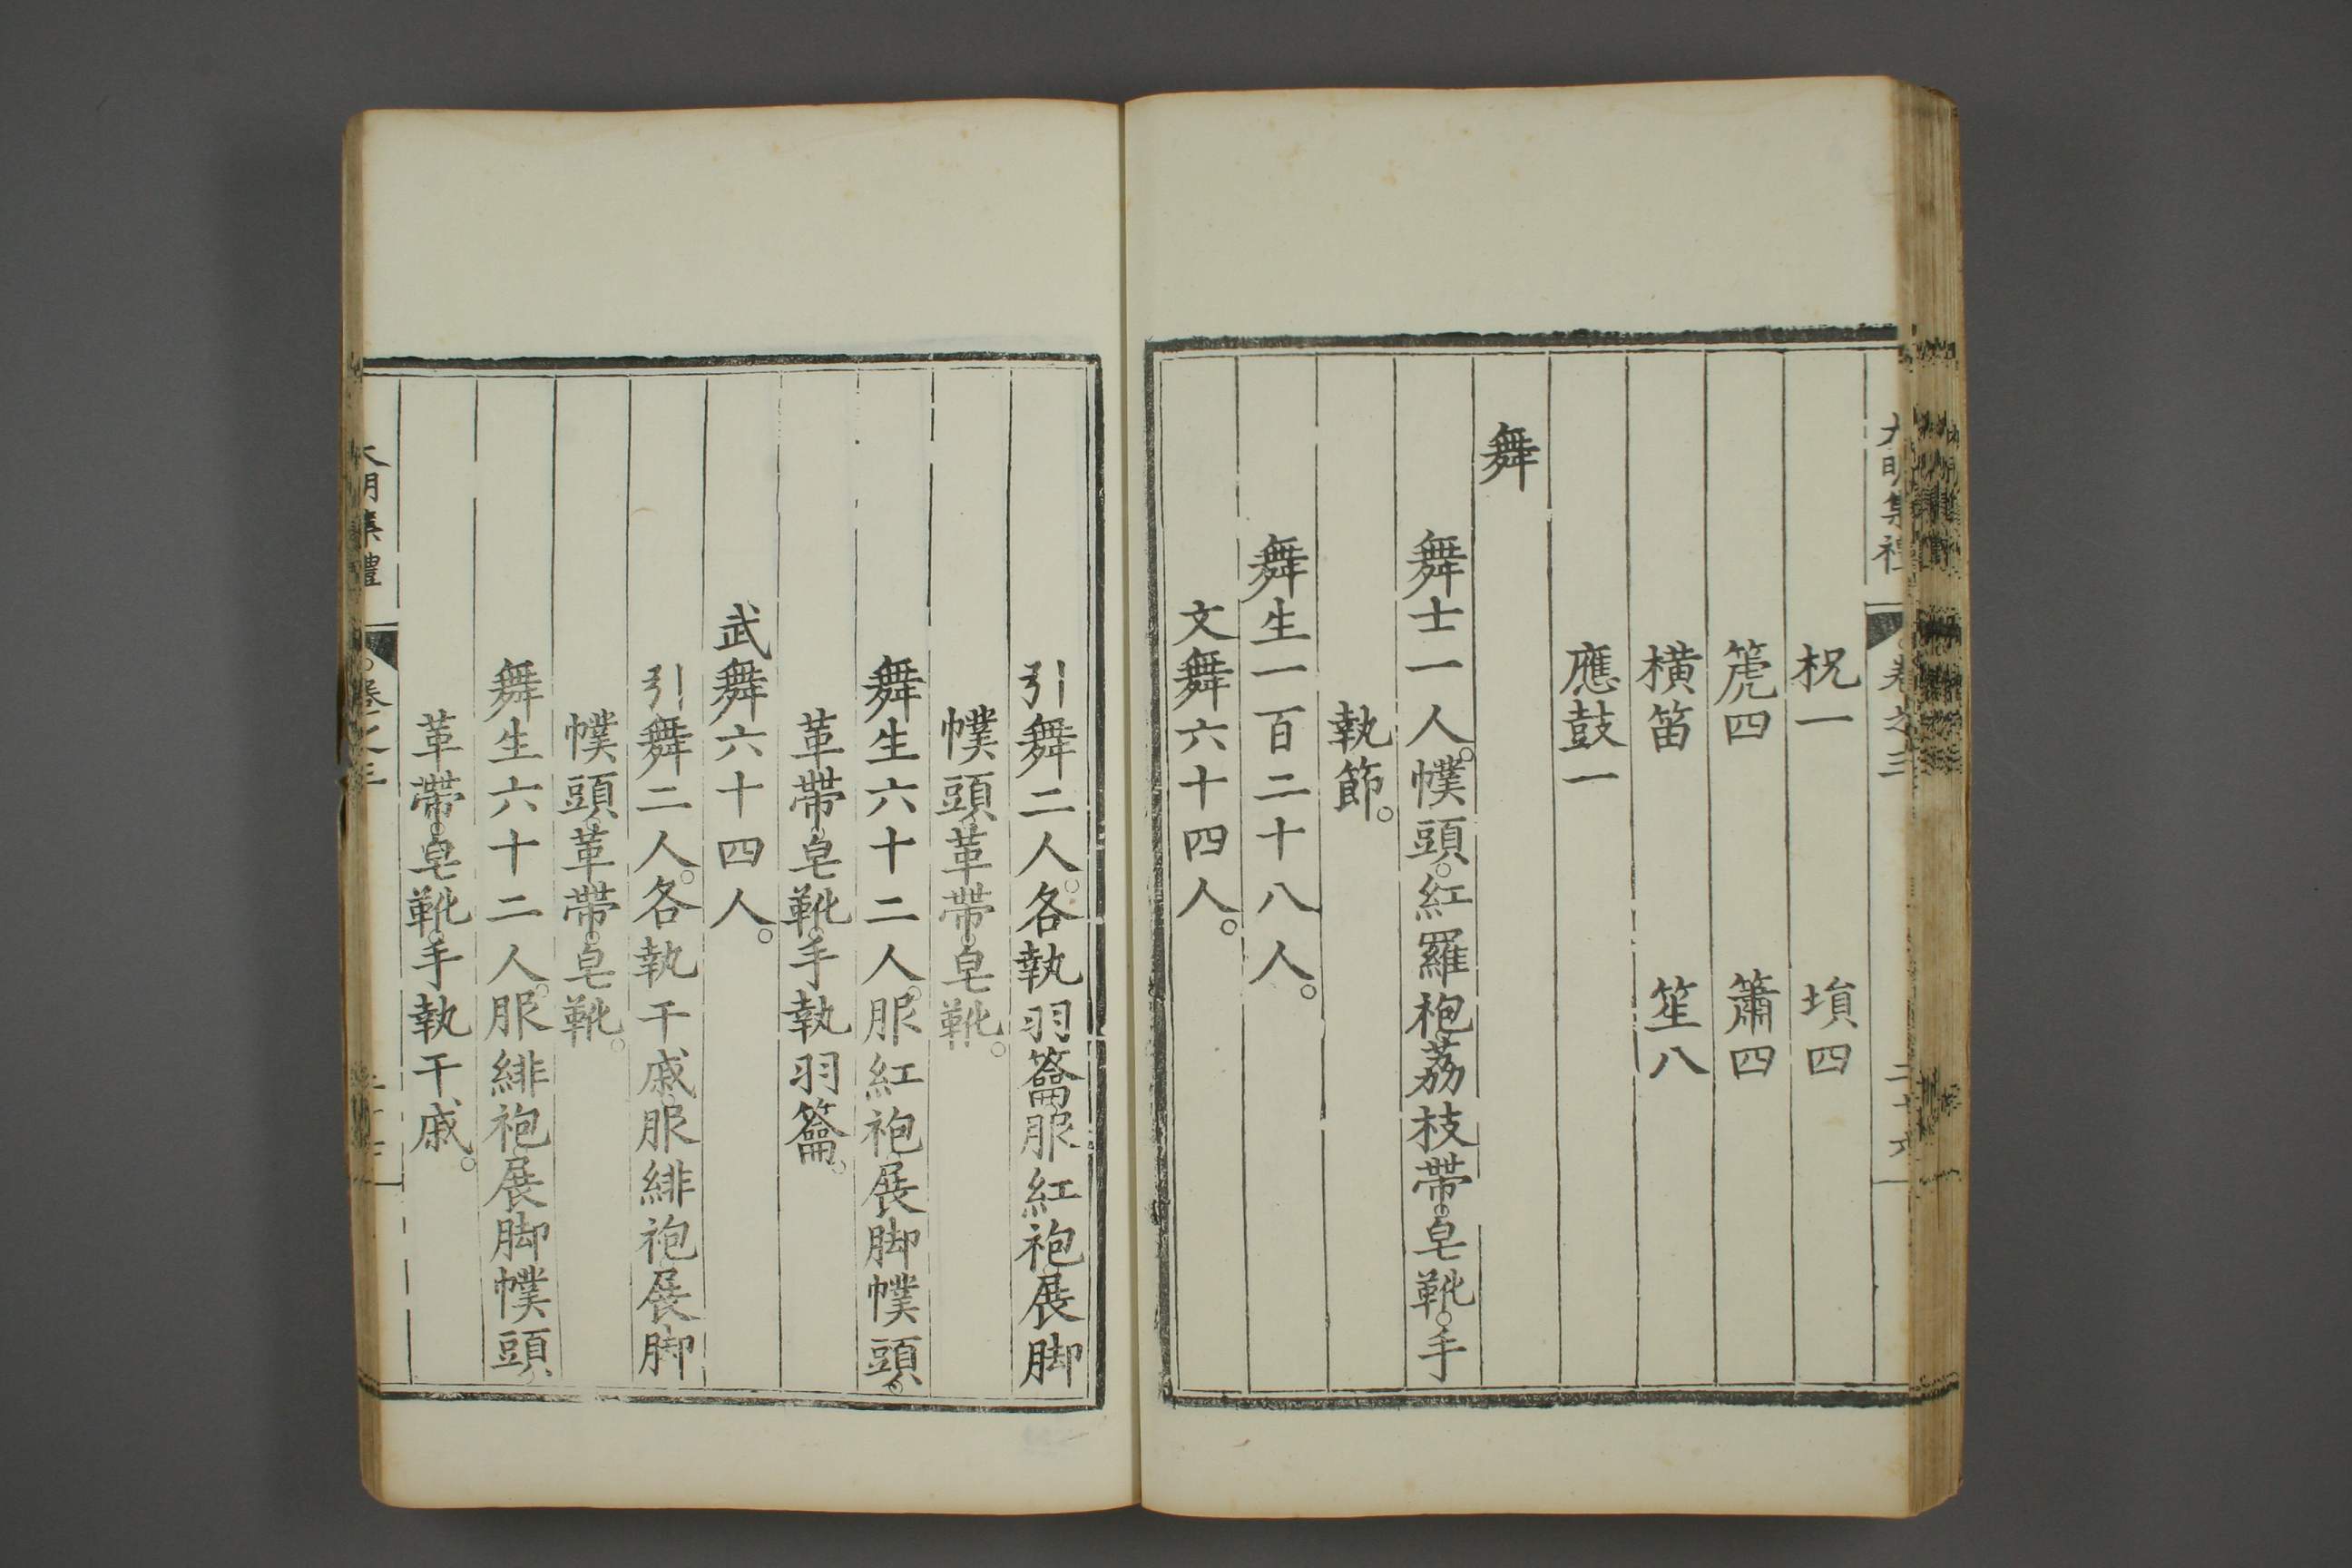 大明集禮 卷之三 二十六
柷一 塤四
箎四 簫四
横笛 笙八
應鼓一
舞
舞士一人。幞頭。紅羅袍。荔枝帶。皂靴。手
執節。
舞生一百二十八人。
文舞六十四人。
引舞二人。各執羽籥。服紅袍。展脚
幞頭。革帶。皂靴。
舞生六十二人。服紅袍。展脚幞頭。
革帶。皂靴。手執羽籥。
武舞六十四人。
引舞二人。各執干戚。服緋袍。展脚
幞頭。革帶。皂靴。
舞生六十二人。服緋袍。展脚幞頭。
革帶。皂靴。手執干戚。
大明集禮 卷之三